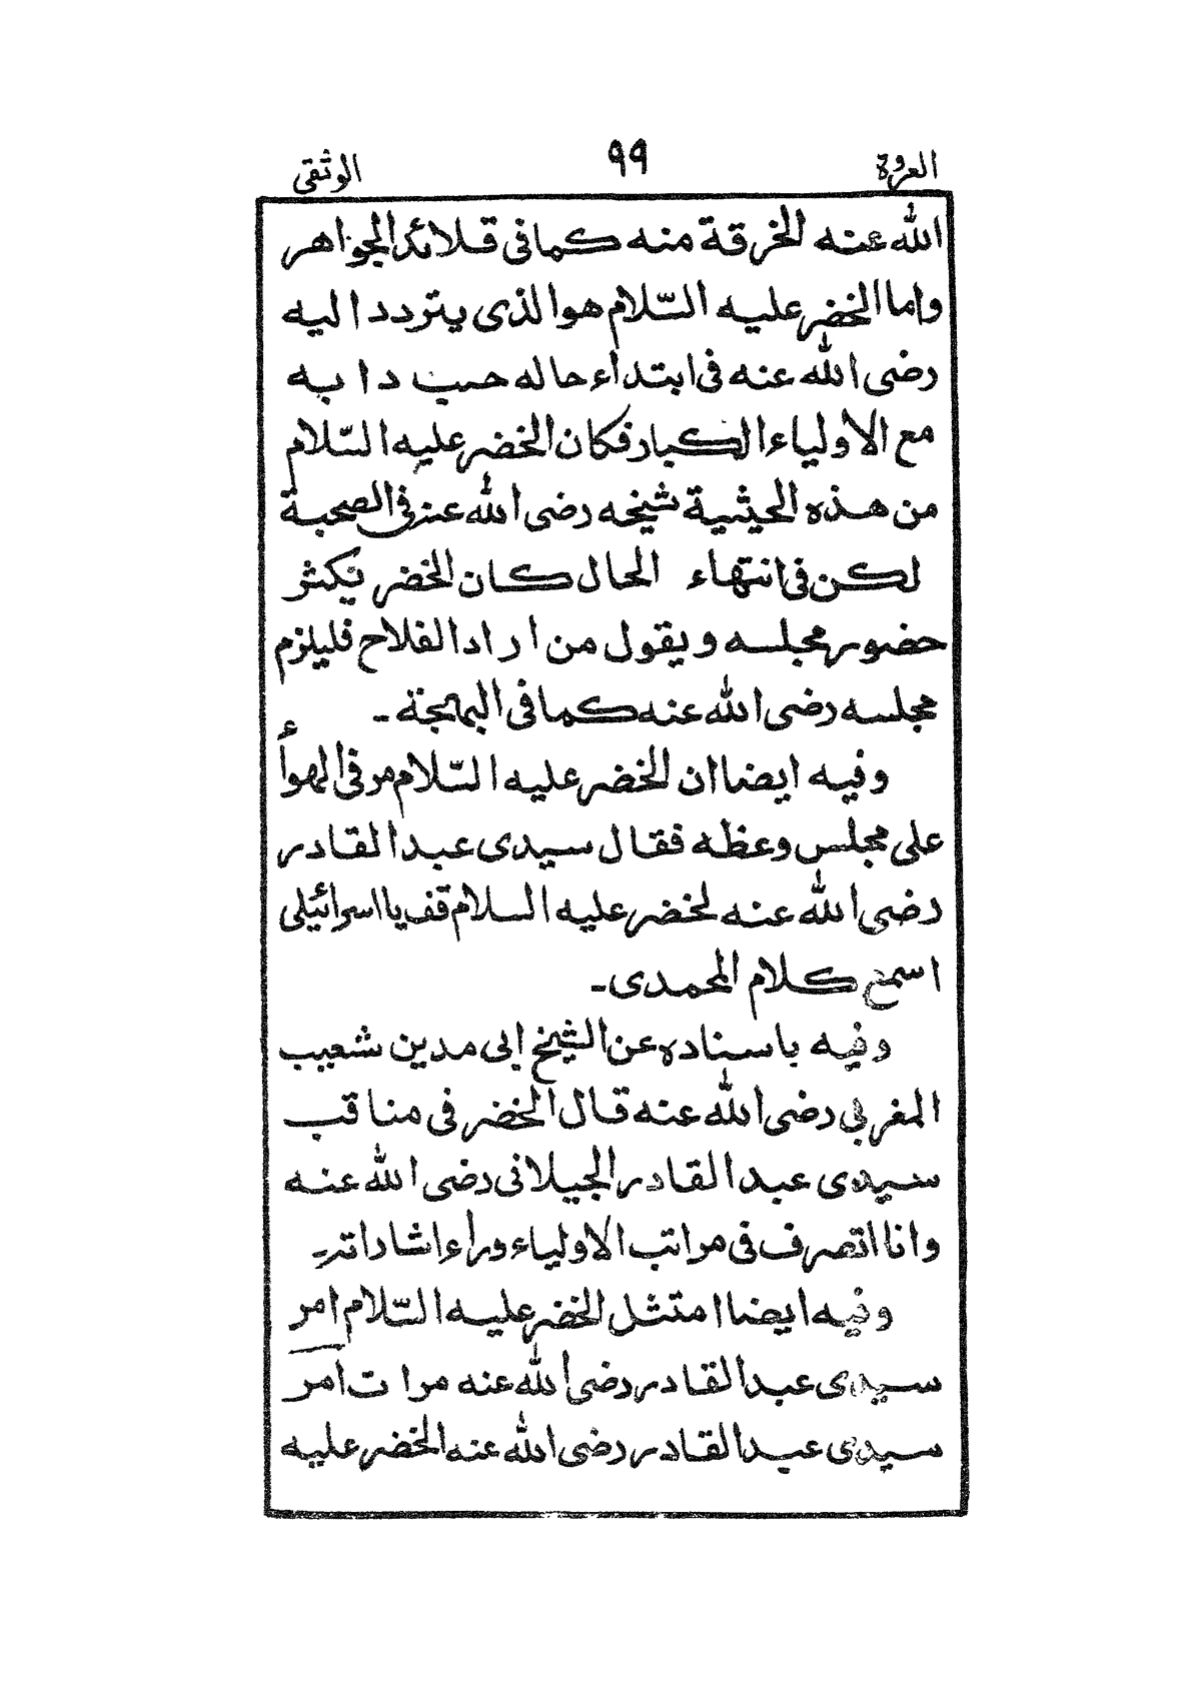 العروة ٩٩ الوثقى
الله عنه الخرقة منه كما في قلائد الجواهر
واما الخضر عليه السّلام هو الذى يتردد اليه
رضى الله عنه فى ابتداء حاله حسب دابه
مع الاولياء الكبار فكان الخضر عليه السّلام
من هذه الحيثية شيخه رضى الله عنه فى الصحبة
لكن فى انتهاء الحال كان الخضر يكثر
حضور مجلسه ويقول من اراد الفلاح فليلزم
مجلسه رضى الله عنه كما فى البهجة ـ
وفيه ايضا ان الخضر عليه السّلام مر فى الهوأء
على مجلس وعظه فقال سيدى عبد القادر
رضى الله عنه لخضر عليه السلام قف يا اسرائيلى
اسمع كلام المحمدى ـ
وفيه باسناده عن الشيخ ابى مدين شعيب
المغربي رضى الله عنه قال الخضر فى مناقب
سيدى عبد القادر الجيلانى رضى الله عنه
وانا اتصرف فى مراتب الاولياء وراء اشاراته ـ
وفيه ايضا امتثل الخضر عليه السّلام امر
سيدى عبد القادر رضى الله عنه مرات امر
سيدى عبد القادر رضى الله عنه الخضر عليه